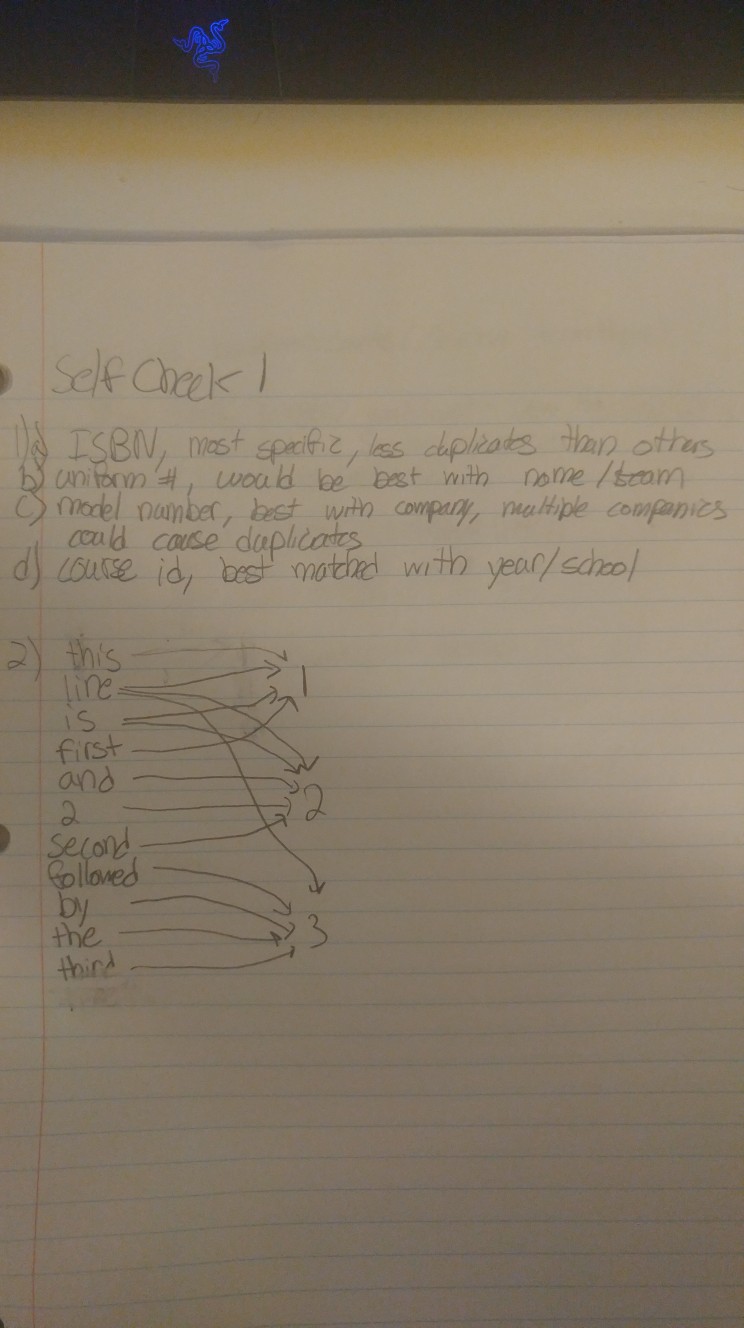 Self Check 1
1)a) ISBN, most specific, less duplicates than others
b) uniform #, would be best with name/team
c) model number, best with company, multiple companies
could cause duplicates
d) course id, best matched with year/school
2) this
line
1
is
first
and
2
2
second
followed
by
the
3
third